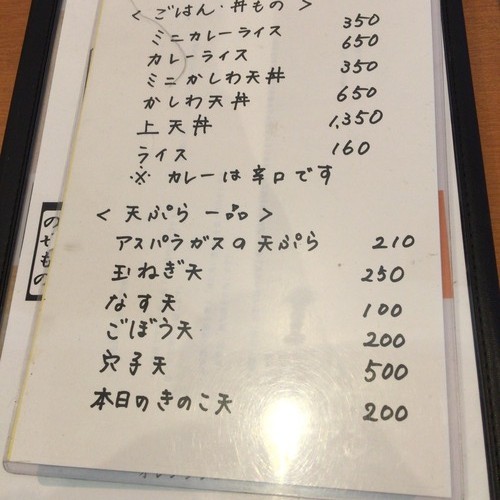 < ごはん・丼もの >
ミニカレーライス 350
カレーライス 650
ミニかしわ天丼 350
かしわ天丼 650
上天丼 1,350
ライス 160
※ カレーは辛口です
< 天ぷら 一品 >
アスパラガスの天ぷら 210
玉ねぎ天 250
なす天 100
ごぼう天 200
穴子天 500
本日のきのこ天 200
のせもの